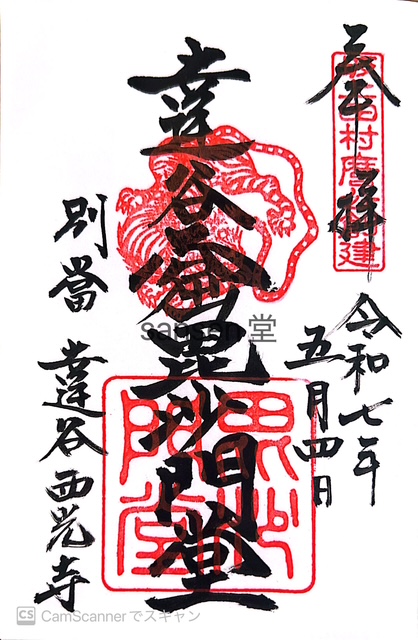 奉拝
令和七年
五月四日
達谷窟毘沙門堂
毘沙門堂
別當
達谷西光寺
堂
CS CamScannerでスキャン